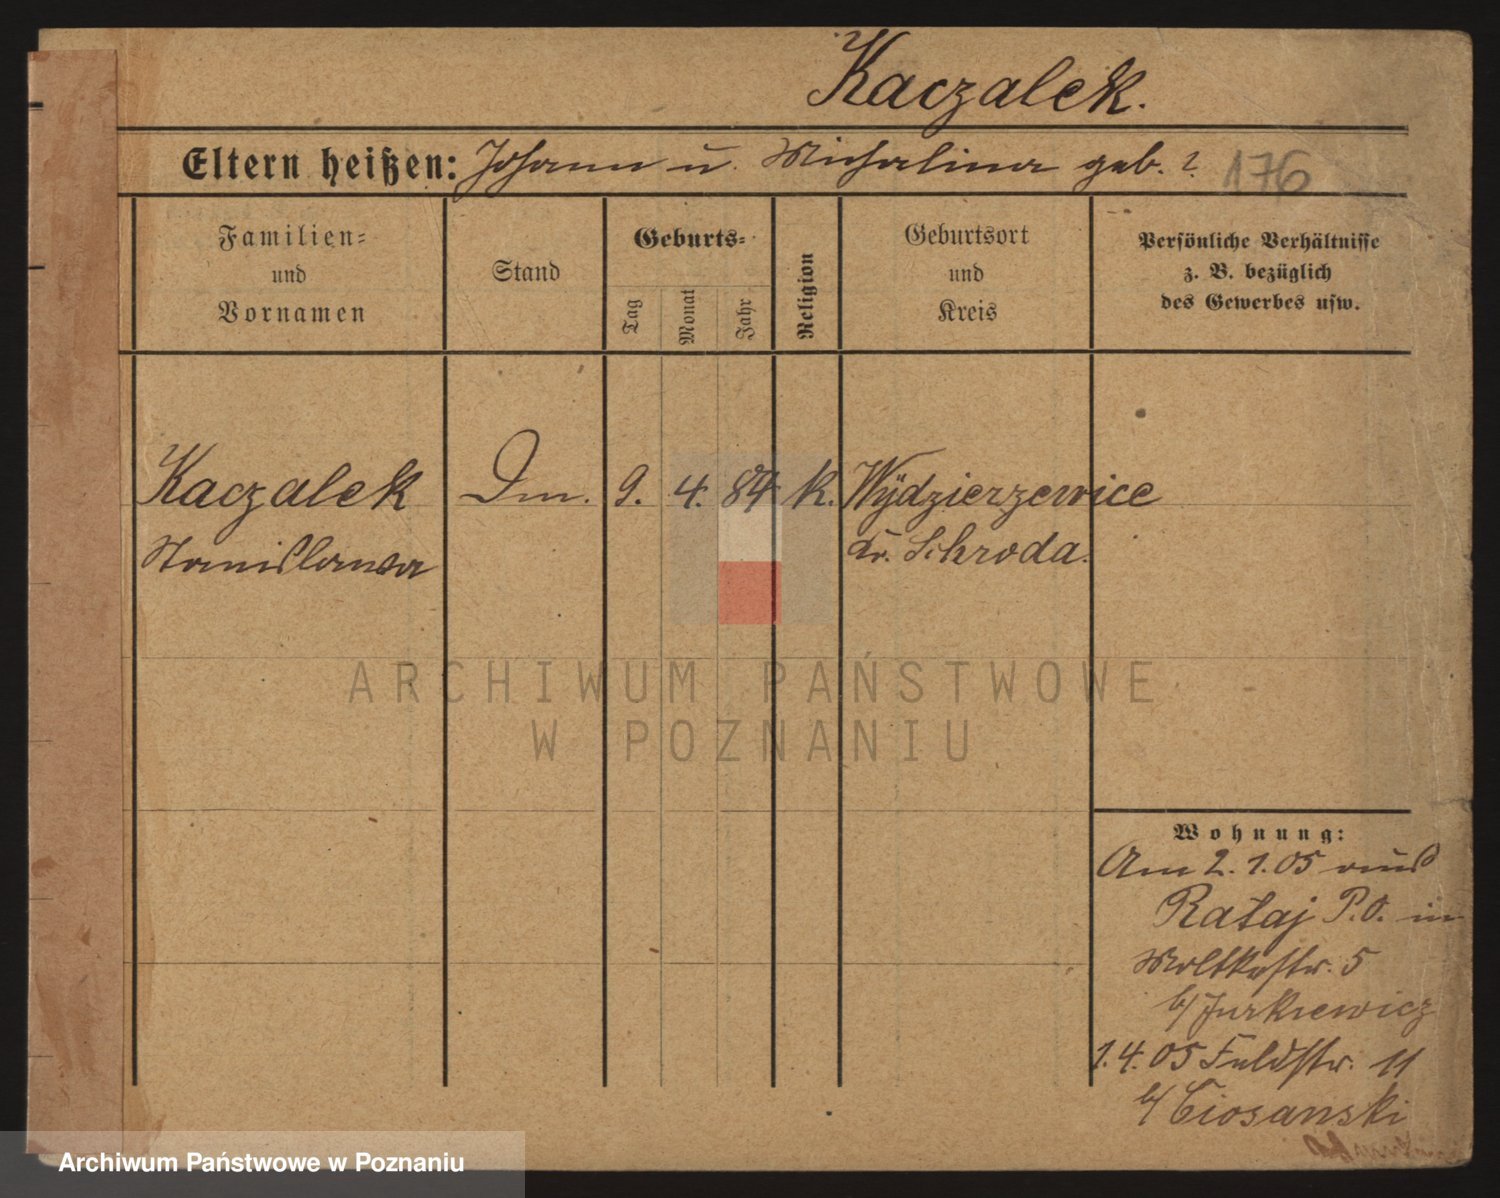 Kaczalek.
Eltern heißen: Johann u. Michalina geb. ?
176
Familien-
und
Vornamen
Stand
Geburts-
Tag
Monat
Jahr
Religion
Geburtsort
und
Kreis
Persönliche Verhältnisse
z. B. bezüglich
des Gewerbes usw.
Kaczalek Dm. 9. 4. 84 K. Wÿdzierzewice
Stanislawa Kr. Schroda.
ARCHIWUM PAŃSTWOWE
W POZNANIU
Wohnung:
Am 2. 1. 05 aus
Rataj P.O. in
Moltkestr. 5
b/ Jurkiewicz
1. 4. 05 Feldstr. 11
b/ Ciosanski
Archiwum Państwowe w Poznaniu